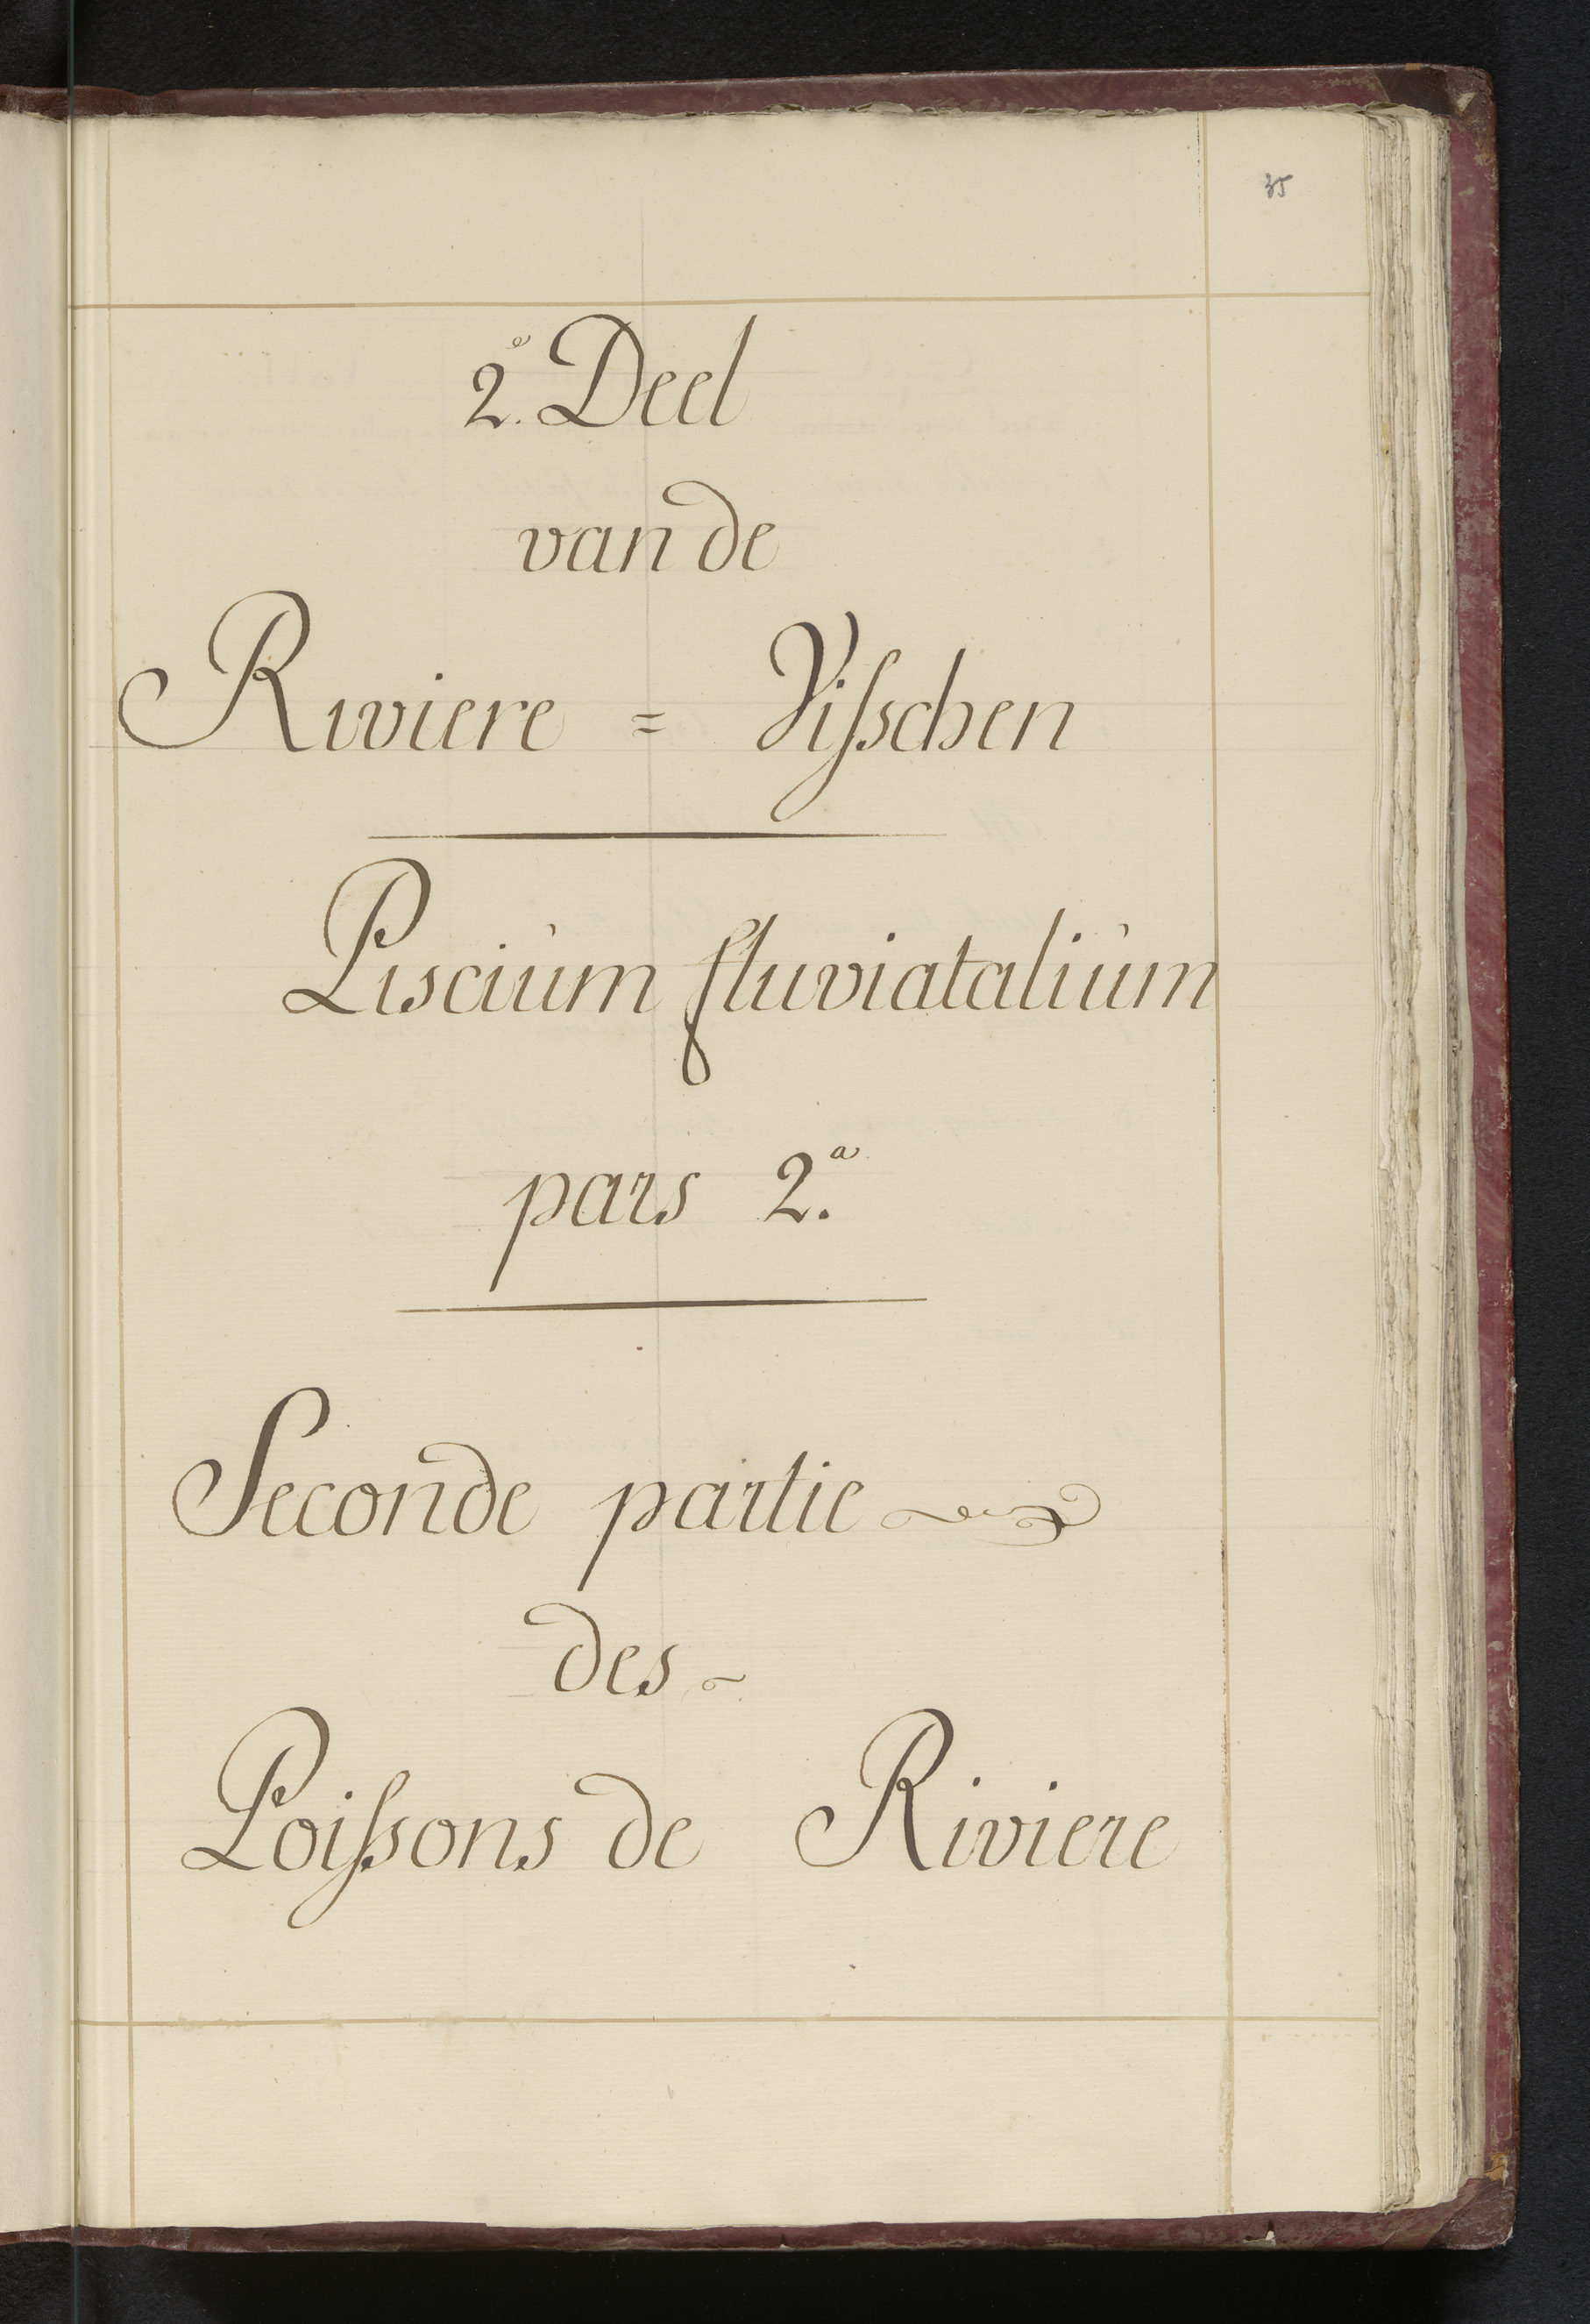 35
2.e Deel
van de
Riviere = Viſschen
Piscium fluviatalium
pars 2.a
Seconde partie
des
Poiſsons de Riviere